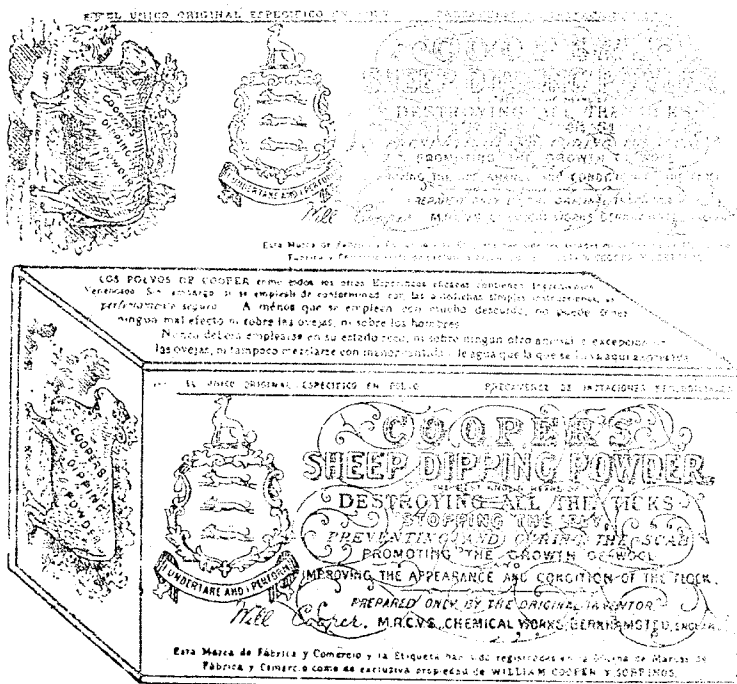 EL UNICO ORIGINAL ESPECIFICO EN POLVO
COOPER'S
SHEEP DIPPING POWDER
DESTROYING ALL THE TICKS
PREVENTING AND CURING THE SCAB
PROMOTING THE GROWTH OF WOOL
PREPARED ONLY BY THE ORIGINAL INVENTOR
COOPER'S
DIPPING
POWDER
I UNDERTAKE AND I PERFORM
Will Cooper. M.R.C.V.S. CHEMICAL WORKS
Esta Marca de Fábrica
LOS POLVOS DE COOPER como todos los otros Específicos eficaces contienen Ingredientes
Venenosos. Sin embargo, si se emplean de conformidad con las adjuntas simples instrucciones, es
perfectamente seguro. A ménos que se empleen con mucho descuido, no puede tener
ningun mal efecto ni sobre las ovejas, ni sobre los hombres
Nunca deberá emplearse en su estado seco, ni sobre ningún otro animal a excepcion de
las ovejas, ni tampoco mezclarse con menor cantidad de agua que la que se
EL UNICO ORIGINAL ESPECIFICO EN POLVO PRECAVERSE DE IMITACIONES
COOPER'S
DIPPING
POWDER
COOPER'S
SHEEP DIPPING POWDER.
DESTROYING ALL THE TICKS
STOPPING THE
PREVENTING AND CURING THE SCAB
PROMOTING THE GROWTH OF WOOL
IMPROVING THE APPEARANCE AND CONDITION OF THE FLOCK.
I UNDERTAKE AND I PERFORM
PREPARED ONLY BY THE ORIGINAL INVENTOR.
Will Cooper. M.R.C.V.S., CHEMICAL WORKS, BERKHAMSTED, ENGLAND.
Esta Marca de Fábrica y Comercio y la Etiqueta han sido registradas en la Oficina de Marcas de
Fábrica y Comercio como de exclusiva propiedad de WILLIAM COOPER Y SOBRINOS.